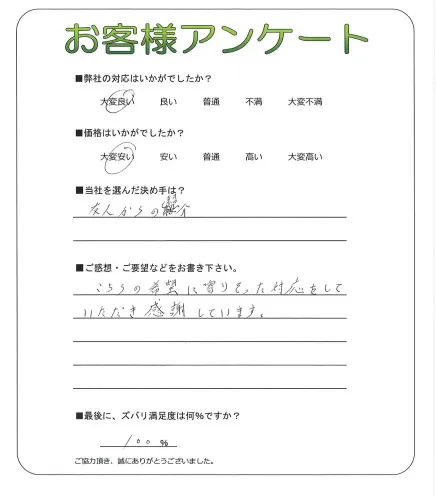 お客様アンケート
■弊社の対応はいかがでしたか？
大変良い 良い 普通 不満 大変不満
■価格はいかがでしたか？
大変安い 安い 普通 高い 大変高い
■当社を選んだ決め手は？
友人からの紹介
■ご感想・ご要望などをお書き下さい。
こちらの希望に寄りそった対応をして
いただき感謝しています。
■最後に、ズバリ満足度は何％ですか？
100 %
ご協力頂き、誠にありがとうございました。